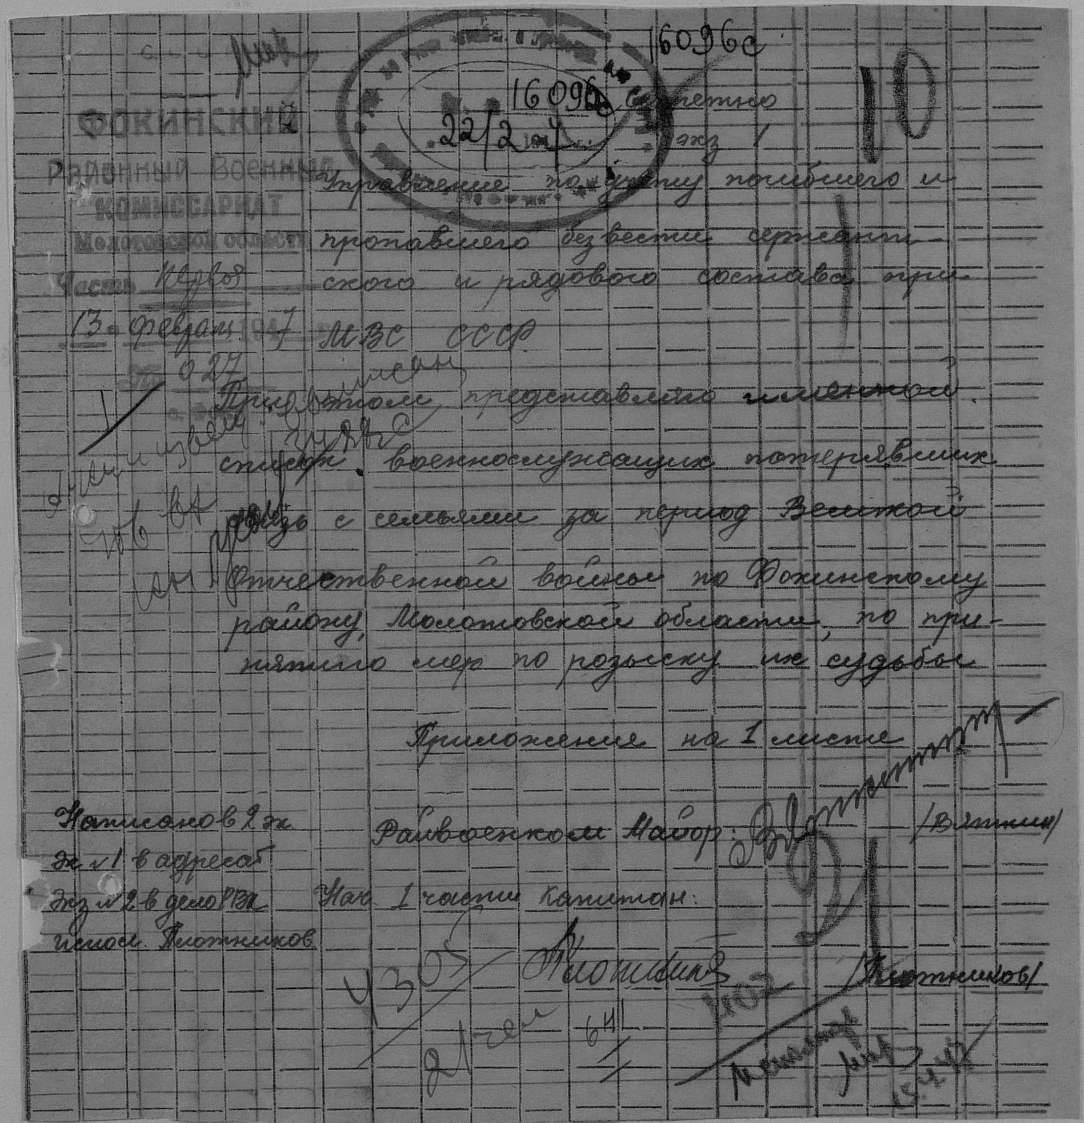 16096с
16096с
22/2
Секретно
экз 1
10
ФОКИНСКИЙ
Районный Военный
КОМИССАРИАТ
Молотовской области
Часть первая
13 " февраля 1947
№ 027
Управление по учету погибшего и
пропавшего без вести сержант-
ского и рядового состава при
МВС СССР
При этом представляю именной
список военнослужащих потерявших
связь с семьями за период Великой
Отечественной войны по Фокинскому
району, Молотовской области, по при-
нятию мер по розыску их судьбы
Приложение на 1 листе
Райвоенком Майор: /Вяткин/
Нач 1 части капитан:
/Плотников/
Написано в 2 эк
Эк №1 в адресат
Экз №2 в дело РВК
исполн. Плотников
21
4305
21 чел
641
402